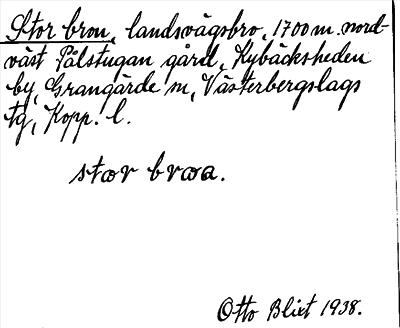 Stor bron, landsvägsbro, 1700 m. nord-
väst Pålstugan gård, Kybäcksheden
by, Grangärde sn, Västerbergslags
tg, Kopp. l.
stor broa.
Otto Blixt 1938.